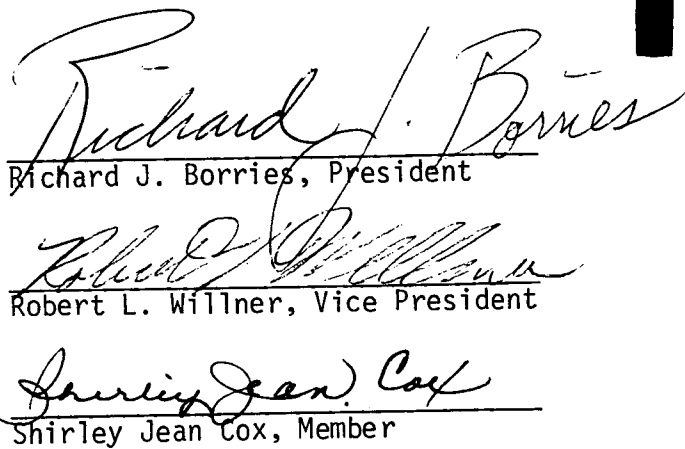 Richard J. Borries
Richard J. Borries, President
Robert L Willner
Robert L. Willner, Vice President
Shirley Jean Cox
Shirley Jean Cox, Member